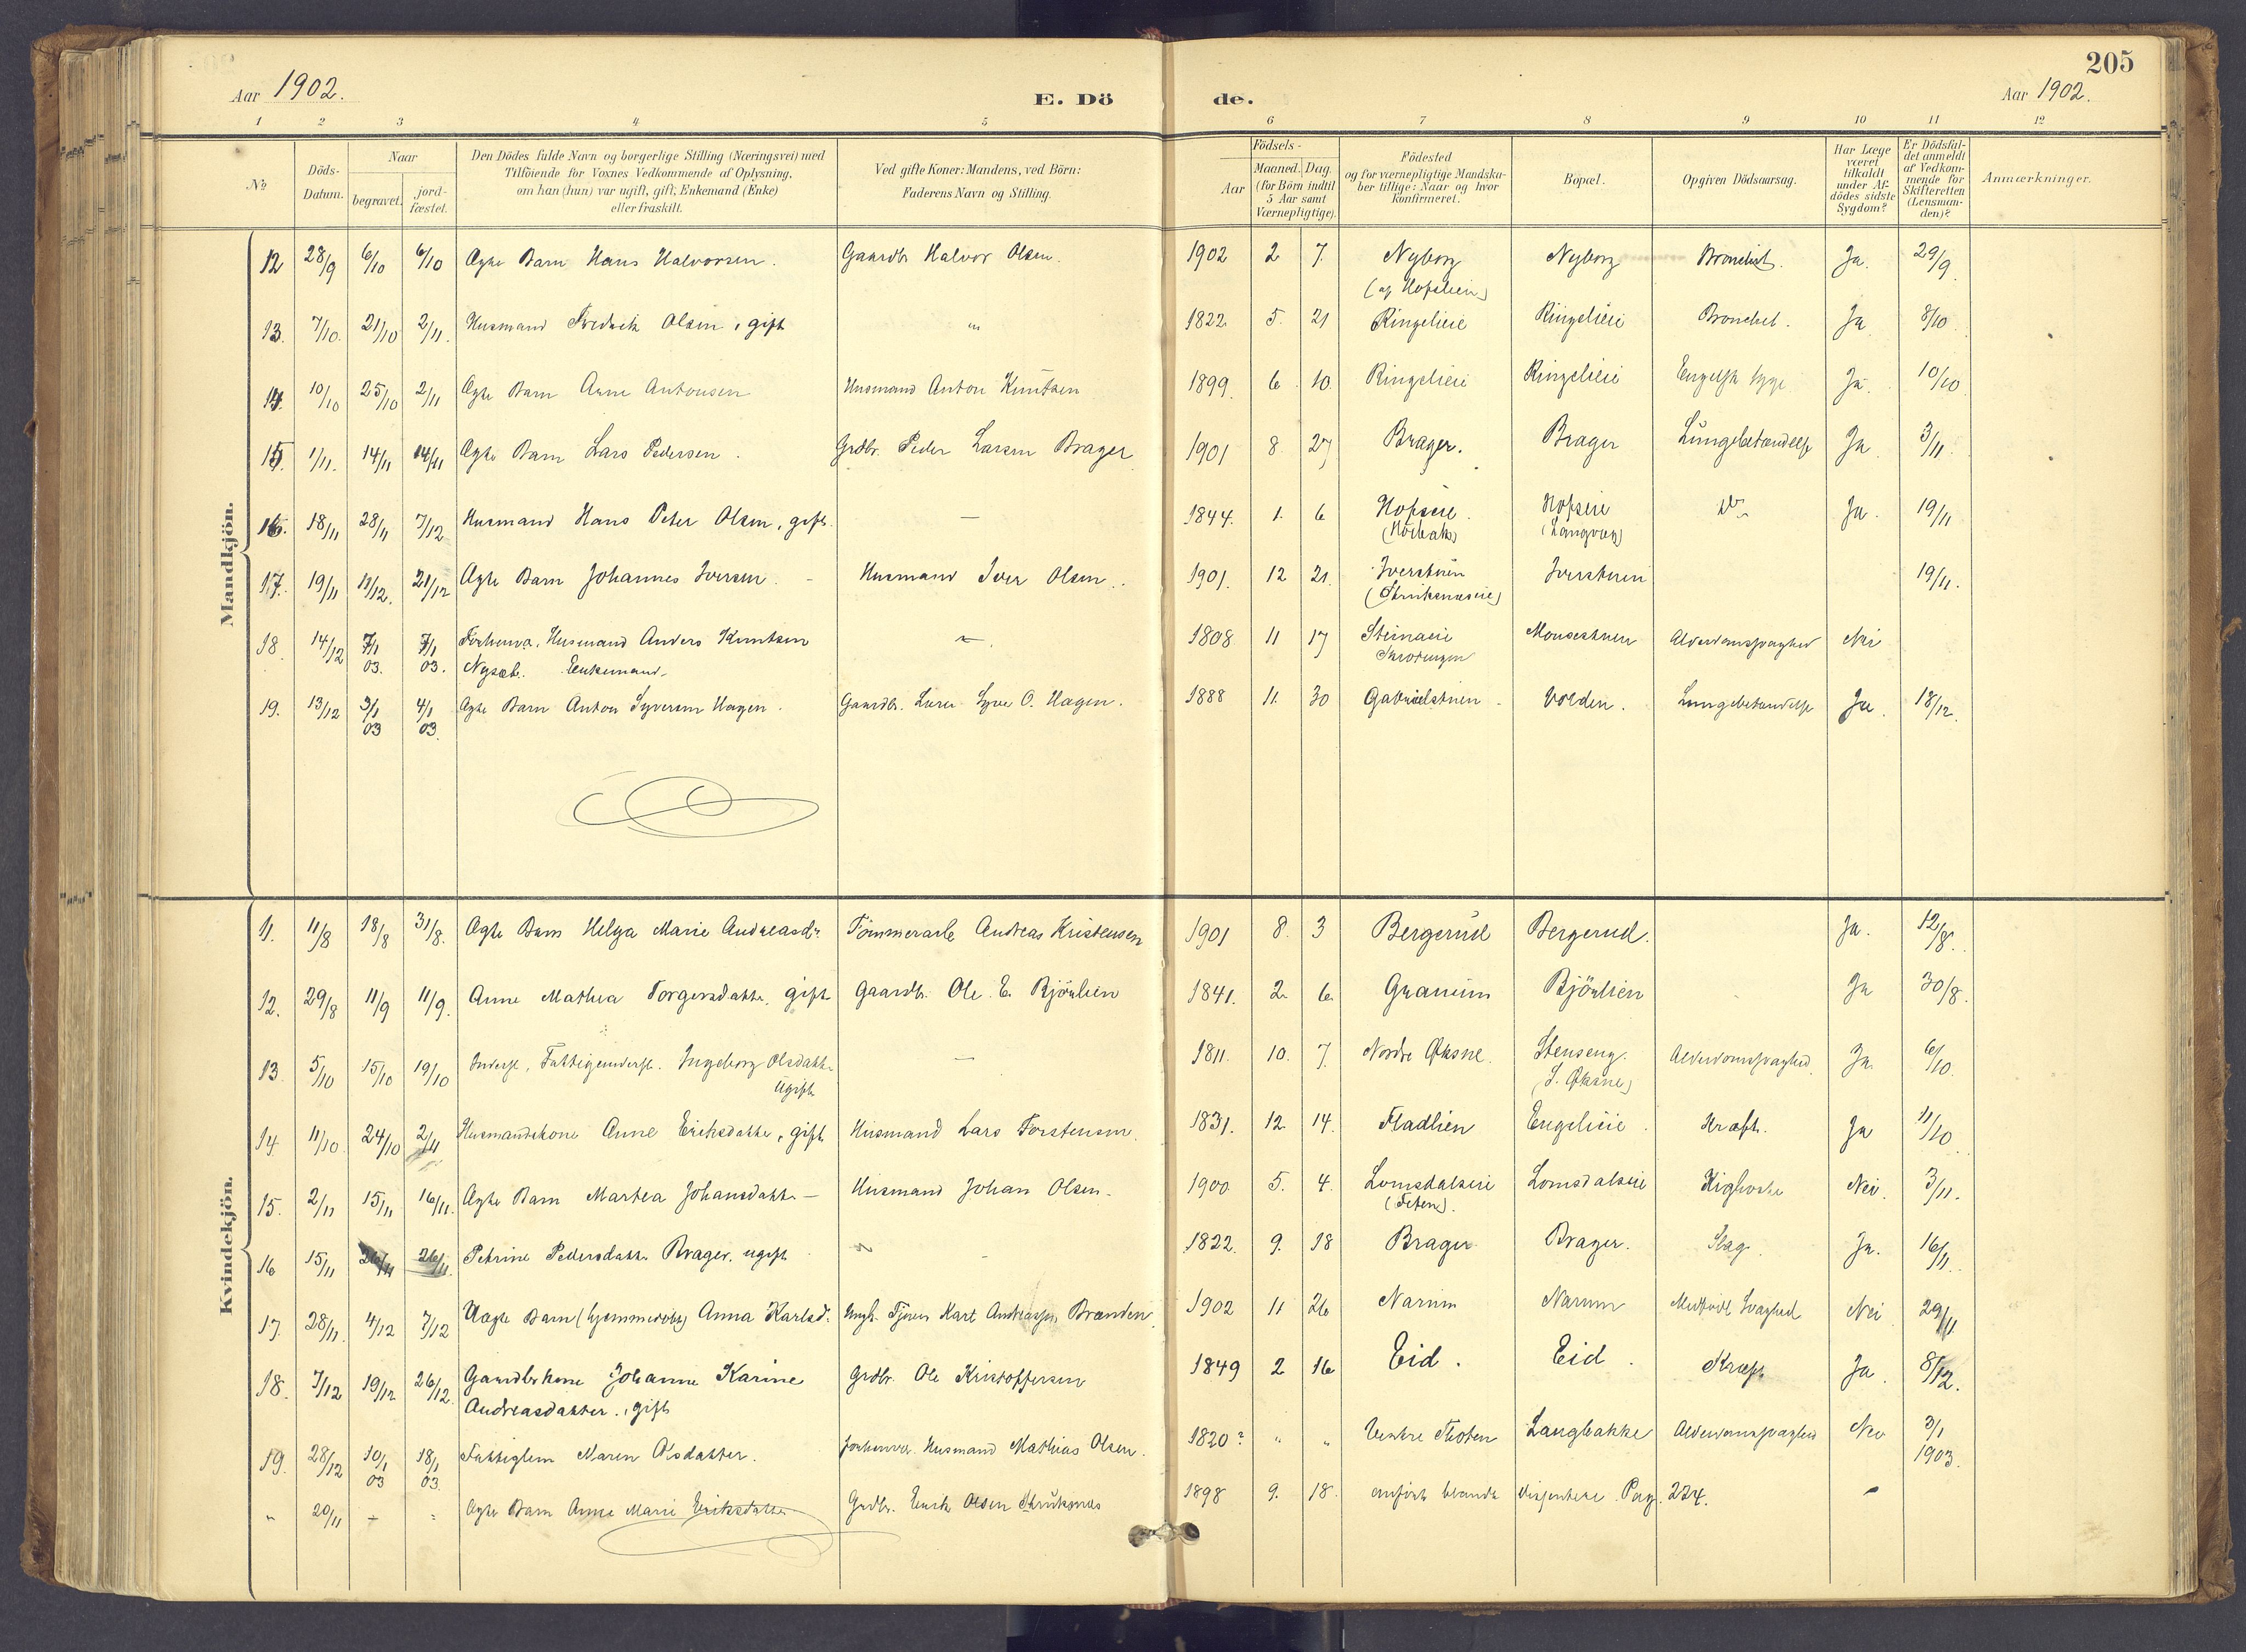 205
Aar 1902.
E. Dö de.
Aar 1902.
1 2 3 4 5 6 7 8 9 10 11 12
No
Döds-Datum.
Naar
begravet. jord-fæstet.
Den Dödes fulde Navn og borgerlige Stilling (Næringsvei) med
Tilföiende for Voxnes Vedkommende af Oplysning,
om han (hun) var ugift, gift, Enkemand (Enke)
eller fraskilt.
Ved gifte Koner: Mandens, ved Börn:
Faderens Navn og Stilling.
Födsels-
Aar Maaned. Dag.
(for Börn indtil
5 Aar samt
Værnepligtige).
Födested
og for værnepligtige Mandska-
ber tillige: Naar og hvor
konfirmeret.
Bopæl.
Opgiven Dödsaarsag.
Har Læge
været
tilkaldt
under Af-
dödes sidste
Sygdom?
Er Dödsfal-
det anmeldt
af Vedkom-
mende for
Skifteretten
(Lensman-
den)?
Anmærkninger.
Mandkjön.
12 28/9 6/10 6/10 Ægte Barn Hans Halvorsen. Gaardbr Halvor Olsen. 1902 2 7. Nyborg Nyborg Bronchit. Ja. 29/9.
13. 7/10. 21/10 2/11. Husmand Fredrik Olsen, gift " 1822 5. 21 Ringelieie Ringelieie Bronchit. Ja 8/10
14. 10/10 25/10 2/11 Ægte Barn Anne Antonsen Husmand Anton Knutsen 1899. 6. 10. Ringelieie Ringelieie Engelsk syge Ja. 10/10
15. 1/11. 14/11 14/11 Ægte Barn Lars Pedersen. Grdbr. Peder Larsen Brager 1901 8. 27 Brager. Brager Lungebetændelse Ja. 3/11.
16. 18/11 28/11 7/12 Husmand Hans Peter Olsen, gift. — 1844. 1. 6 Hofseie. Hofseie Do Ja. 19/11
(Langvæg)
17. 19/11 13/12. 21/12 Ægte Barn Johannes Iversen. Husmand Iver Olsen. 1901. 12 21. Iverstuen Iverstuen 19/11.
18. 14/12 7/1 03. 7/1 03. Forhenv. Husmand Anders Knutsen 1808 11 17 Alderdomssvaghed Nei
Enkemand.
19. 13/12 3/1 03 4/1 03. Ægte Barn Anton Syversen Hagen. Gaardbr. O. Hagen. 1888 11. 30 Gabrielstuen Volden. Lungebetændelse Ja. 18/12.
Kvindekjön.
11. 11/8 18/8 31/8. Ægte Barn Helga Marie Andreasdr. Tömmerarb. Andreas Kristensen 1901 8. 3 Bergerud Bergerud. Ja. 12/8.
12. 29/8 11/9 11/9. Anne Mathea Torgersdatter, gift Gaardbr. Ole E. Björlien 1841. 2. 6. Granum Björlien Ja 30/8.
13 5/10 15/10 19/10 Inderst, Ingeborg Olsdatter — 1811. 10. 7. Nordre Øksne. Stenseng. Alderdomssvaghed. Ja. 6/10.
Ugift (S. Øksne)
14. 11/10. 24/10 2/11 Husmandskone Anne Eriksdatter, gift Husmand Lars Torstensen. 1831. 12. 14. Fladlien Engelieie. Kræft. Ja 11/10
15. 2/11 15/11 16/11. Ægte Barn Martea Johansdatter — Husmand Johan Olsen. 1900 5. 4. Lomsdalseie Lomsdalseie Kighoste Nei. 3/11.
(Feten).
16 15/11 26/11 26/11. Petrine Pedersdatter Brager. ugift 1822. 9. 18 Brager Brager. Slag. Ja. 16/11.
17. 28/11. 4/12 7/12 Uægte Barn (hjemmedöbt) Anna Karlsd. Ungk. Tjener Karl Andreassen Brænden. 1902 11 26 Narum Narum Medfödt Svaghed Nei. 29/11
18. 7/12 19/12 26/12. Gaardbrkone Johanne Karine Grdbr. Ole Kristoffersen 1849 2 16 Eid. Eid. Kræft Ja. 8/12.
Andreasdatter., gift
19. 28/12 10/1 03 18/1 03. Fattiglem Maren Olsdatter. Forhenvr. Husmand Mathias Olsen. 1820? " " Vestre Thoten Langbakke Alderdomssvaghed Nei 3/1 1903.
" 20/11 Ægte Barn Anne Marie Eriksdatter Grdbr. Erik Olsen Skruksnæs 1898 9. 18. anfört blandt Pag. 224.